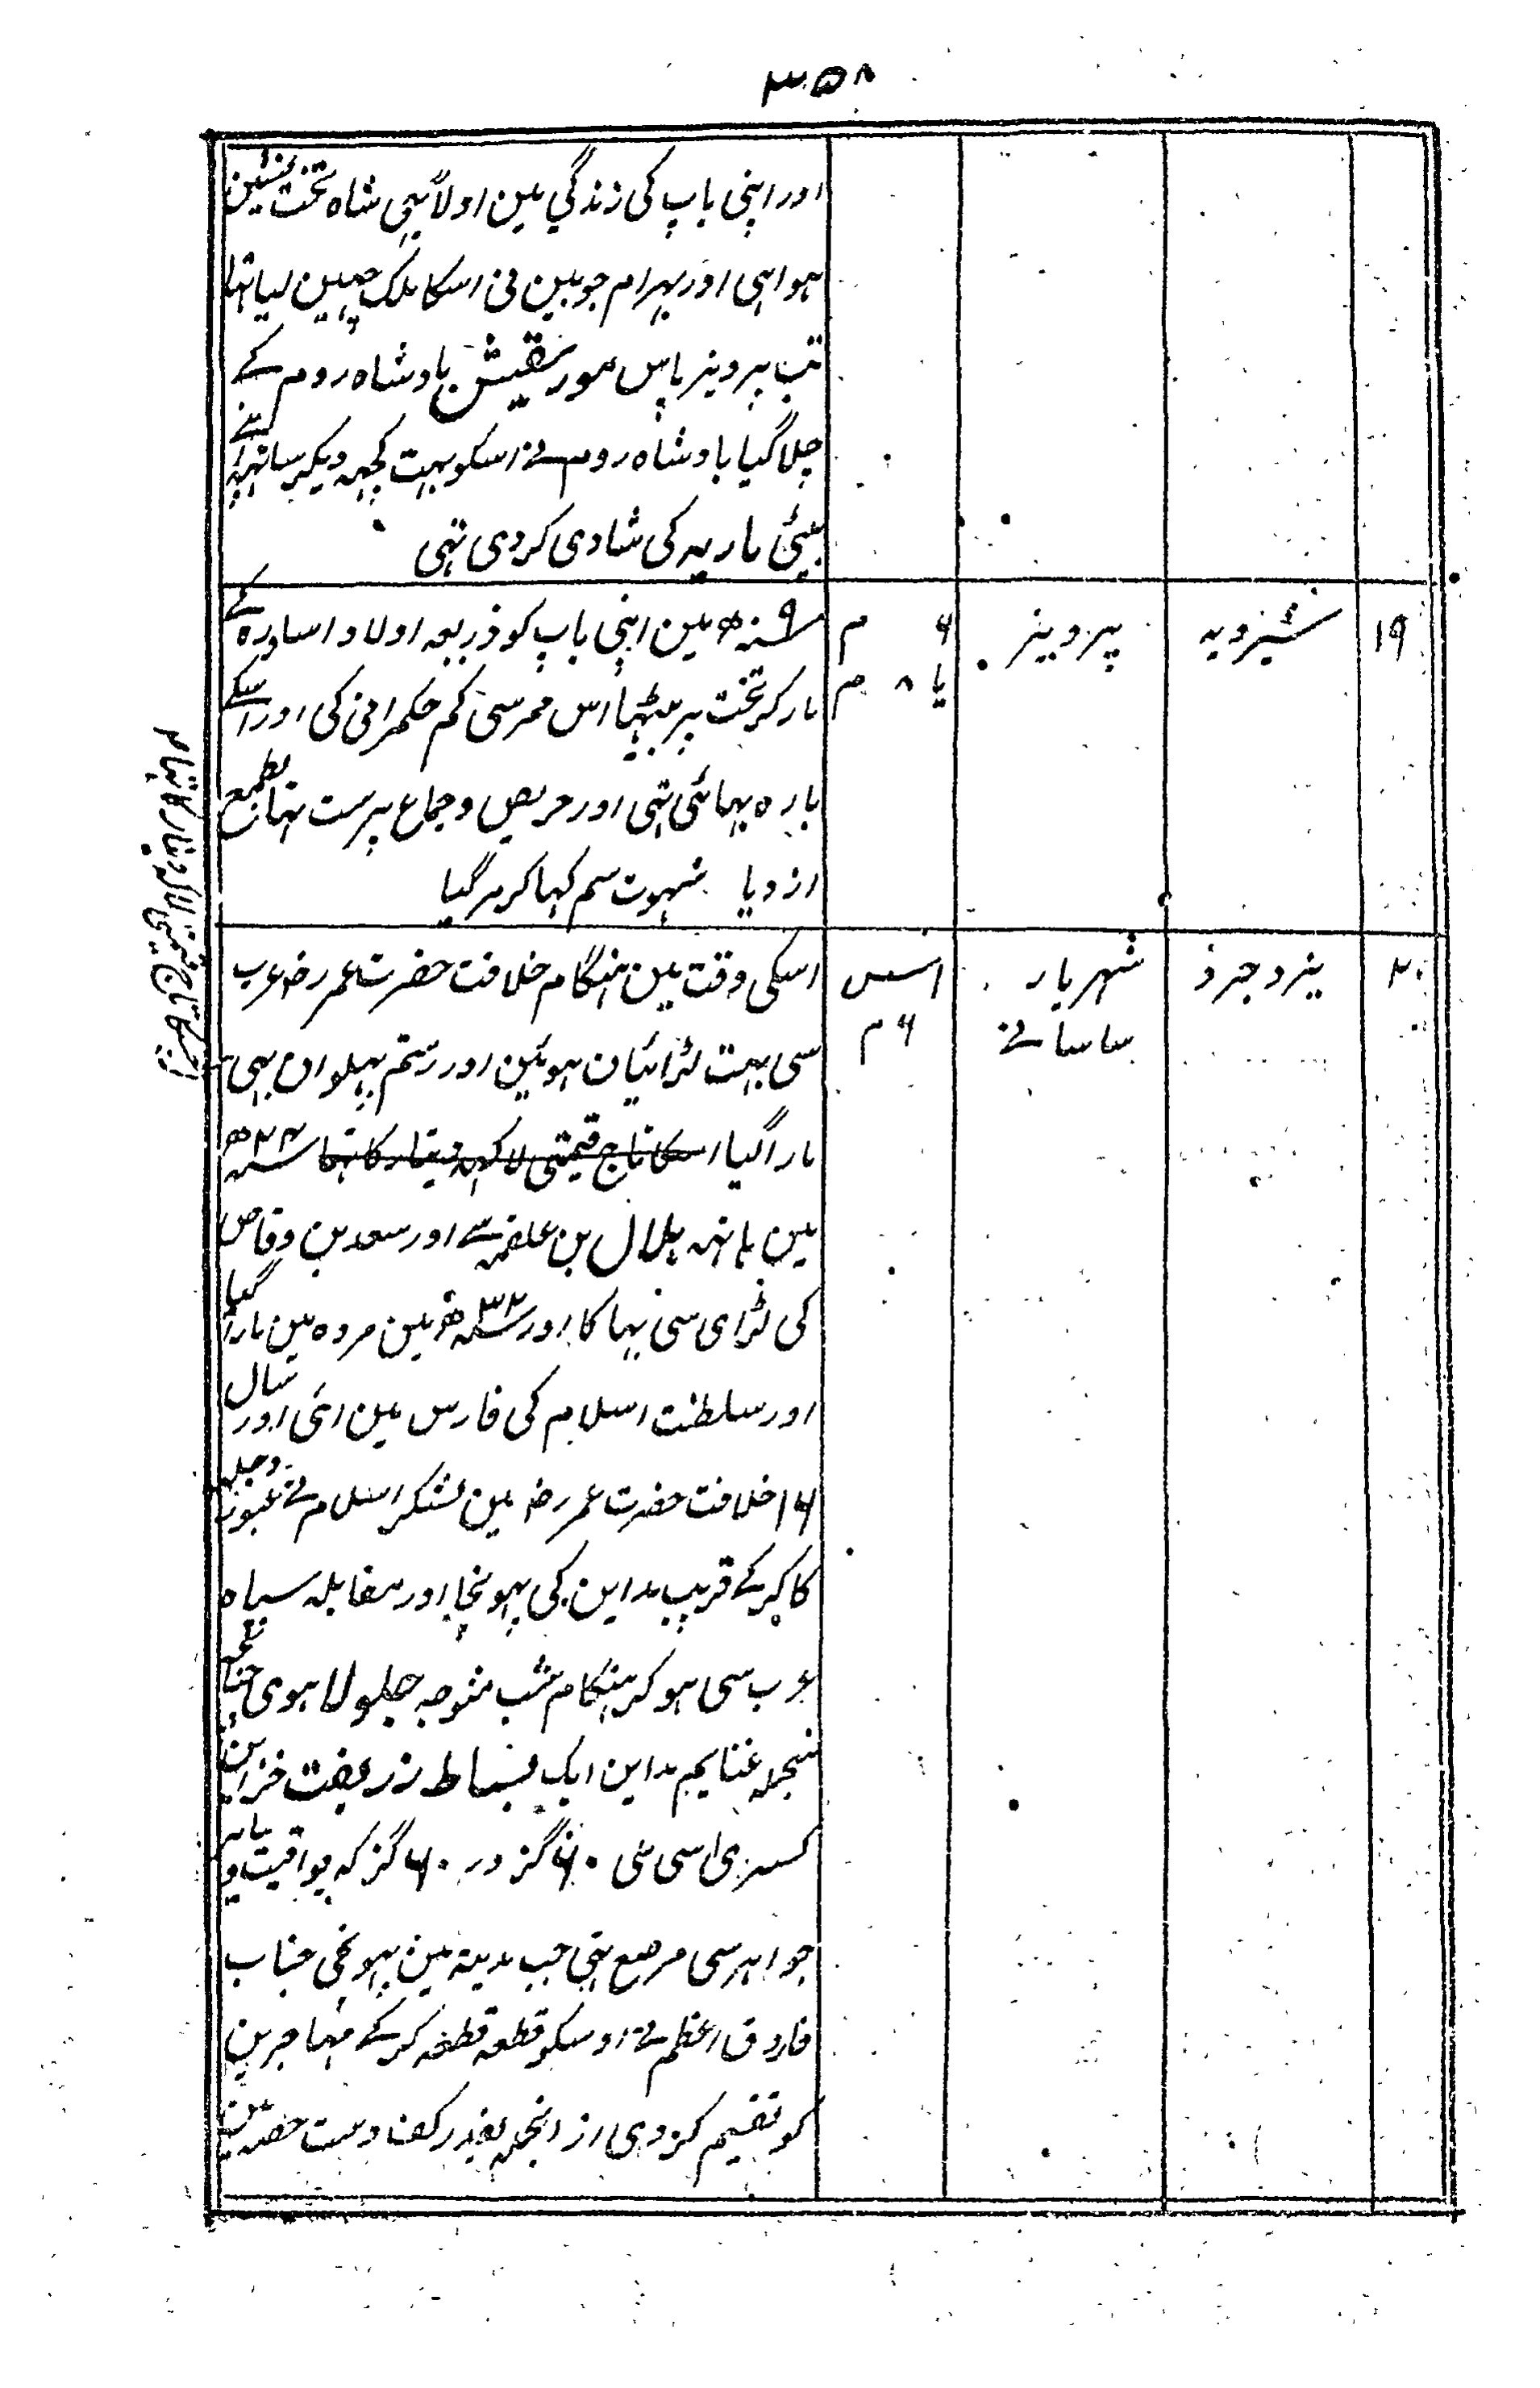 ۳۵۸
اور اپنی باپ کی زندگی مین اولاً یہی شاہ تخت نشین
ہوا ہی اور بہرام جوبین نی اسکا ملک چہین لیا تہا
تب پرویز پاس موریقیش بادشاہ روم کے
چلا گیا بادشاہ روم نے اسکو بہت کچہہ دیکر ساتہہ اپنے
بیٹی ماریہ کی شادی کردی تہی
۱۹ شیرویہ پرویز ۶ م
یا ۸ م
سنہ ۹ ھ مین اپنی باپ کو ذریعہ اولاد اساورہ کے
مار کر تخت پر بیٹہا اس عمر سی کم حکمرانی کی اور اسکے
بارہ بہائی تہی اور حریص و جماع پرست تہا بطمع
ازدیا شہوت سم کہا کر مر گیا
۲۰ یزدجرد شہریار اسس
ساسانے ۶ م
اسکی وقت مین ہنگام خلافت حضرت عمر رضہ عرب
سی بہت لڑائیان ہوئین اور رستم پہلوان بہی
مارا گیا اسکا تاج قیمتی لاکہہ دینار کا تہا سنہ ۲۴ ھ
مین ہاتہہ ہلال بن علقمہ سے اور سعد بن وقاص
کی لڑای سی بہاگا اور سنہ ۳۲ ھ مین مروہ مین مارا گیا
اور سلطنت اسلام کی فارس مین ائی اور سال
۱۶ خلافت حضرت عمر رضہ مین لشکر اسلام نے عبور دجلہ
کا کر کے قریب مداین کی پہونچا اور مقابلہ سپاہ
عرب سی ہو کر ہنگام شب متوجہ جلولا ہوی چنانچہ
منجملہ غنایم مداین ایک بساط زر بفت خزاین
کسری اسی ملی ۶۰ گز در ۶۰ گز کہ یواقیت و
جواہر سی مرصع تہی جب مدینہ مین پہونچی جناب
فاروق اعظم نے اوسکو قطعہ قطعہ کر کے مہاجرین
کو تقسیم کردی ازانجملہ بقدر کف دست حصہ مین